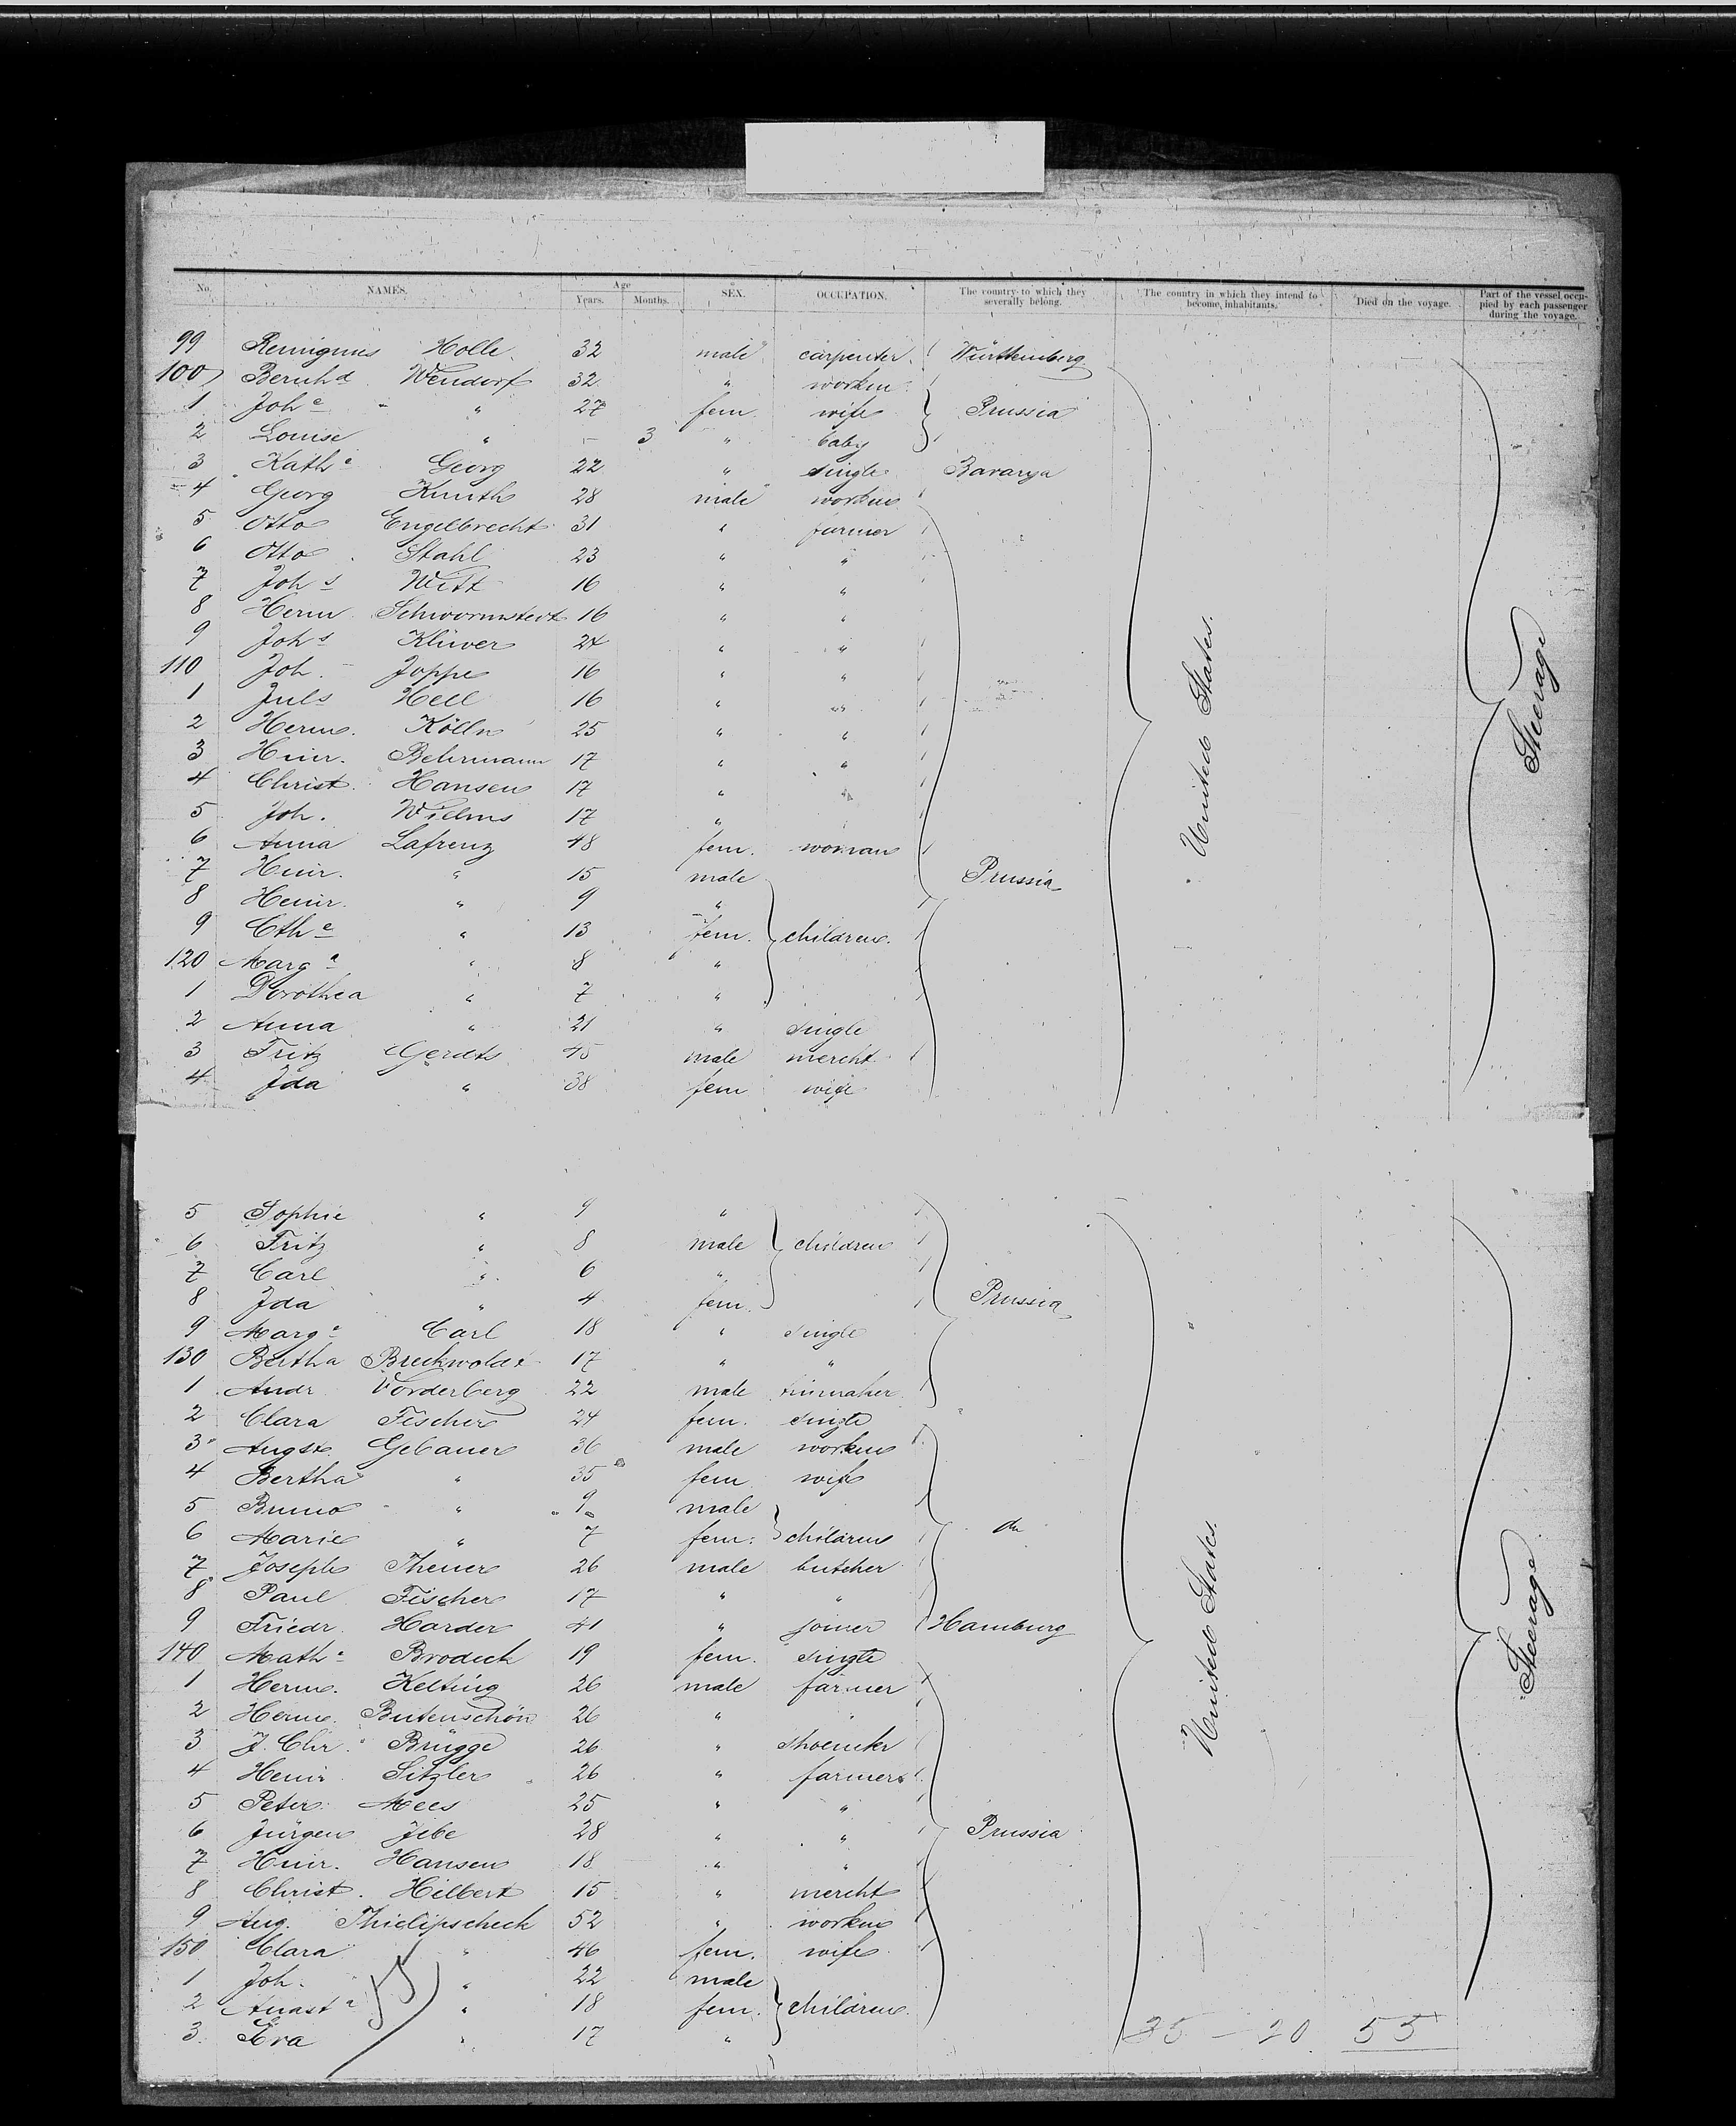 No. NAMES. Age Years. Months. SEX. OCCUPATION. The country to which they severally belong. The country in which they intend to become inhabitants. Died on the voyage. Part of the vessel occupied by each passenger during the voyage.
99 Remigius Holle 32 male carpenter Württemberg
100 Bernhd Wendorf 32 " workm
1 Johe " 27 fem. wife Prussia
2 Louise " - 3 " baby
3 Kathe Georg 22 " single Bavarya
4 Georg Knuth 28 male workm
5 Otto Engelbrecht 31 " farmer
6 Otto Stahl 23 " "
7 Johs Witt 16 " "
8 Herm Schwormstedt 16 " "
9 Johs Klüver 24 " "
110 Joh. Joppe 16 " "
1 Juls Hell 16 " "
2 Herm. Kölln 25 " "
3 Hinr. Behrmann 17 " "
4 Christ. Hansen 17 " "
5 Joh. Wilms 17 "
6 Anna Lafrenz 48 fem. woman
7 Hinr. " 15 male Prussia
8 Heinr. " 9 "
9 Cthe " 13 fem. children
120 Marga " 8 "
1 Dorothea " 7 "
2 Anna " 21 " single
3 Fritz Gerdts 45 male mercht
4 Ida " 38 fem wife
United States.
Steerage
5 Sophie " 9 "
6 Fritz " 8 male children
7 Carl " 6 "
8 Ida " 4 fem. Prussia
9 Marga Carl 18 " single
130 Bertha Breckwoldt 17 " "
1 Andr Vorderberg 22 male tinmaker
2 Clara Fischer 24 fem. single
3 Augst. Gebauer 36 male workm
4 Bertha " 35 fem wife
5 Bruno " 9 male
6 Marie " 7 fem. children do
7 Joseph Theuer 26 male butcher
8 Paul Fischer 17 " "
9 Friedr. Harder 41 " joiner Hamburg
140 Mathe Brodeck 19 fem. single
1 Herm. Kelting 26 male farmer
2 Herm. Butenschön 26 " "
3 J. Chr. Brügge 26 " shoemkr
4 Heinr Sitzler 26 " farmer
5 Peter Mees 25 " "
6 Jürgen Jebe 28 " " Prussia
7 Hinr. Hansen 18 " "
8 Christ. Hilbert 15 " mercht
9 Aug. Thielipscheck 52 " workm
150 Clara " 46 fem. wife
1 Joh. " 22 male
2 Anasta " 18 fem. children
3 Eva " 17 "
United States.
Steerage
35 - 20 55